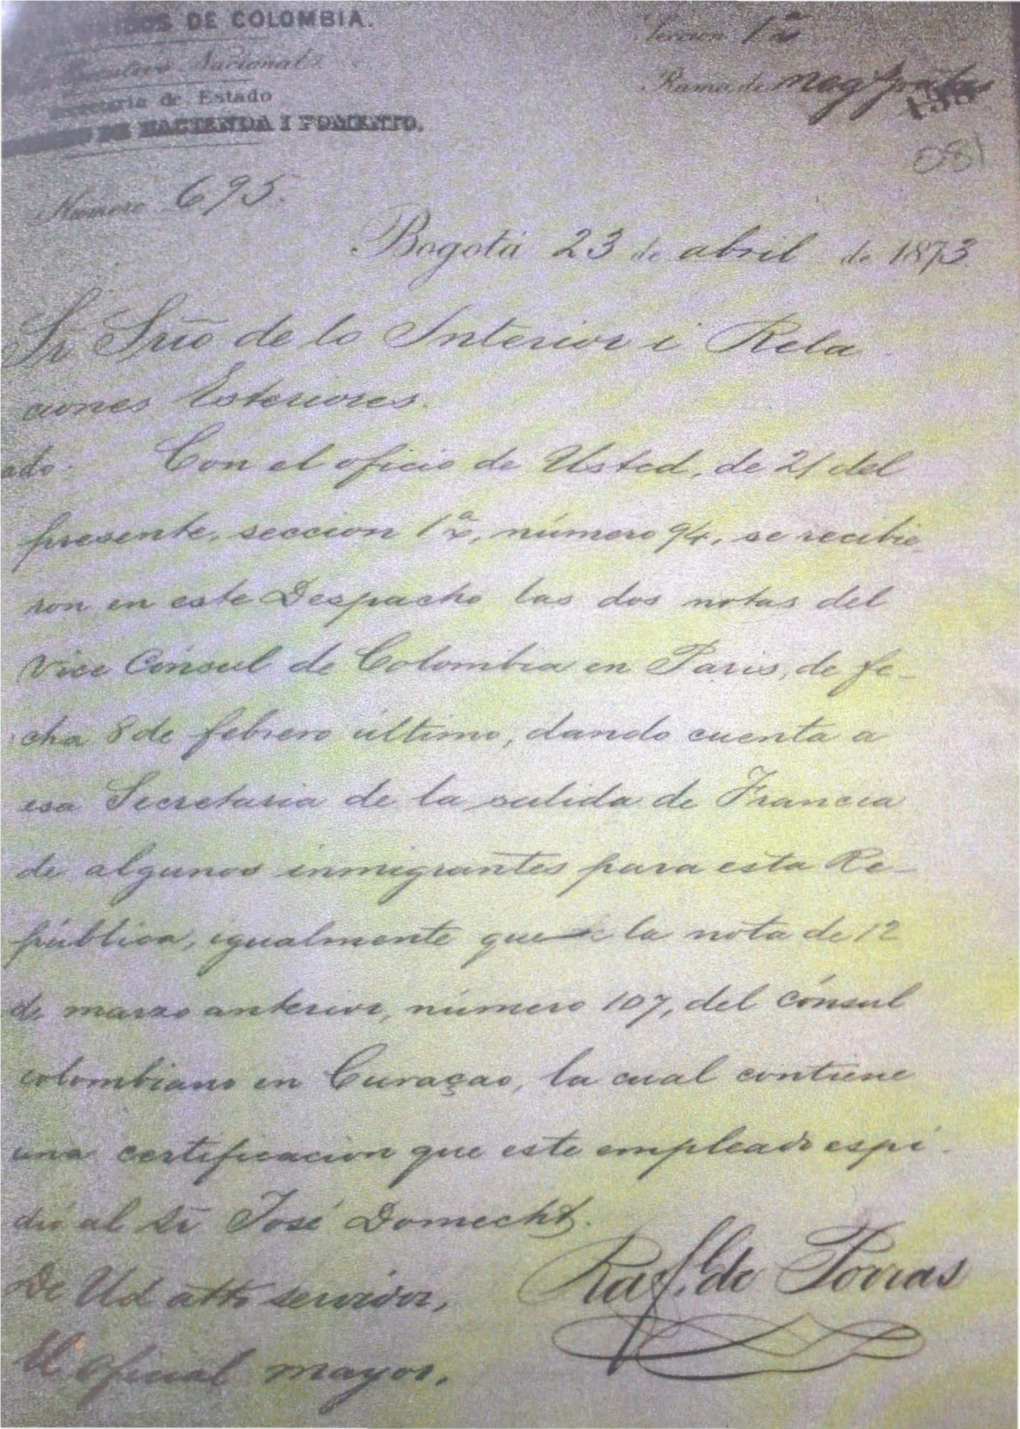 DE COLOMBIA.
Nacional
Seccion 1ª
Secretaria de Estado
Ramo de neg
HACIENDA I FOMENTO.
081
Número 695.
Bogotá 23 de abril de 1873.
Sr Srio de lo Interior i Rela
ciones Esteriores.
ado. Con el oficio de Usted, de 21 del
presente, seccion 1ª, número 94, se recibie
ron en este Despacho las dos notas del
Vice Cónsul de Colombia en Paris, de fe-
cha 8 de febrero último, dando cuenta a
esa Secretaria de la salida de Francia
de algunos inmigrantes para esta Re-
pública, igualmente que la nota de 12
de marzo anterior, número 107, del cónsul
colombiano en Curaçao, la cual contiene
una certificacion que este empleado espi-
dió al Sr José Domecht.
De Ud atto servidor,
Raf.l de Porras
El oficial mayor,